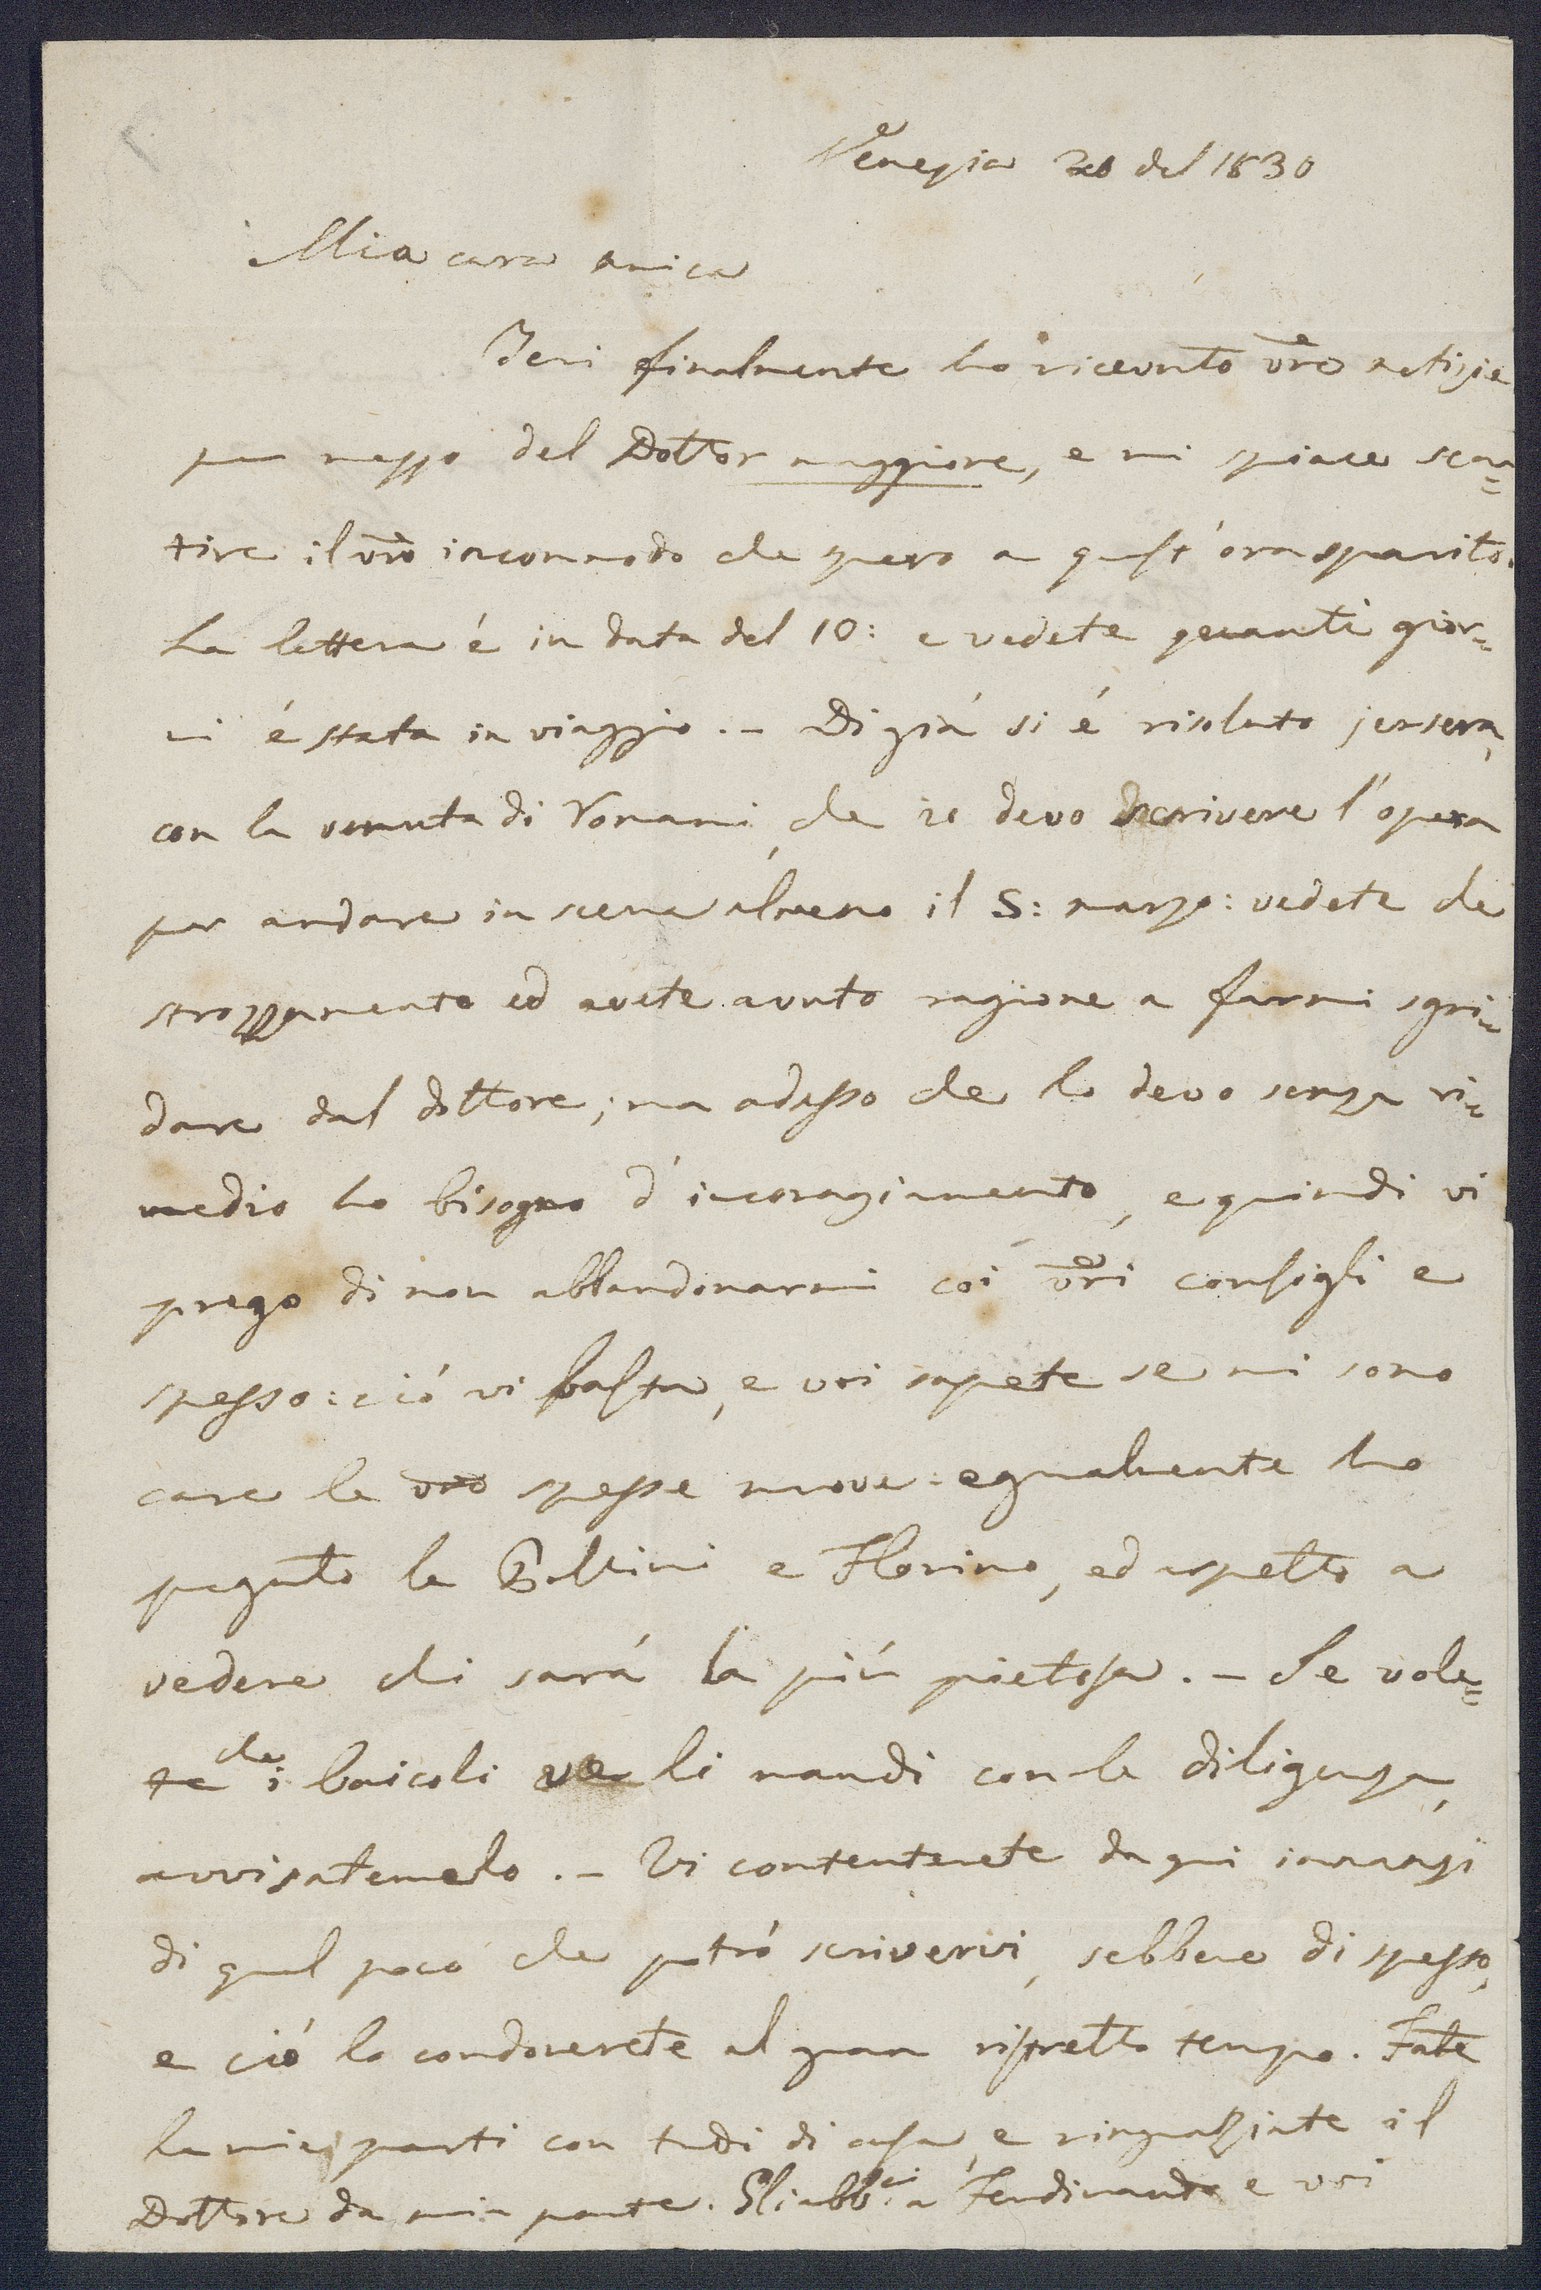 Venezia 20 del 1830
Mia cara amica
Ieri finalmente ho ricevuto vre notizie
per mezzo del Dottor maggiore, e mi spiace sen=
tire il vro incommodo che spero a quest'ora sparito.
La lettera é in data del 10: e vedete quanti gior=
ni é stata in viaggio. - Di giá si é risoluto jersera,
con la venuta di Romani, che io devo scrivere l'opera
per andare in scena almeno il 5: marzo: vedete che
strozzamento ed avete avuto ragione a farmi sgri=
dare dal dottore; ma adesso che lo devo senza ri=
medio ho bisogno d'incoragiamento, e quindi vi
prego di non abbandonarmi coi vri consigli e
spesso: ció vi basta, e voi sapete se mi sono
care le vre spesse nuove: egualmente ho
pregato la e Florimo, ed aspetto a
vedere chi sará la più pietosa. - Se vole=
te che i baicoli ve li mandi con la diligenza,
avvisatemelo. - Vi contenterete da qui innanzi
di quel poco che potró scrivervi, sebbene di spesso,
e ció lo condonerete al gran ristretto tempo. Fate
le mie parti con tutti di casa, e ringraziate il
Dottore da mia parte. Gli abb.ci a Ferdinando e voi